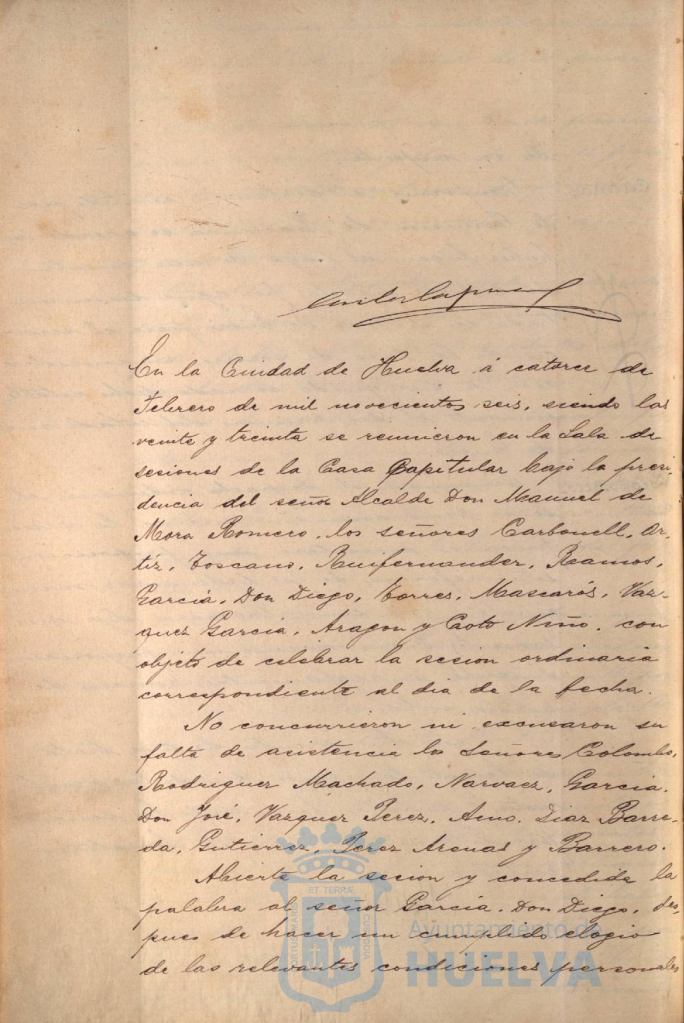 En la Ciudad de Huelva á catorce de
Febrero de mil novecientos seis, siendo las
veinte y treinta se reunieron en la Sala de
sesiones de la Casa Capitular bajo la presi-
dencia del señor Alcalde Don Manuel de
Mora Romero, los señores Carbonell, Or-
tiz, Toscano, Ruifernandez, Ramos,
García, Don Diego, Torres, Mascarós, Vaz-
quez García, Aragon y Coto Niño, con
objeto de celebrar la sesion ordinaria
correspondiente al dia de la fecha.
No concurrieron ni excusaron su
falta de asistencia los Señores Colombo,
Rodriguez Machado, Narvaez, Garcia,
Don José, Vazquez Perez, Amo, Diaz Barre-
da, Gutierrez, Perez Arenas y Barrero.
Abierta la sesion y concedida la
palabra al señor García, Don Diego, des-
pues de hacer un cumplido elogio
de las relevantes condiciones personales
Ayuntamiento de
HUELVA